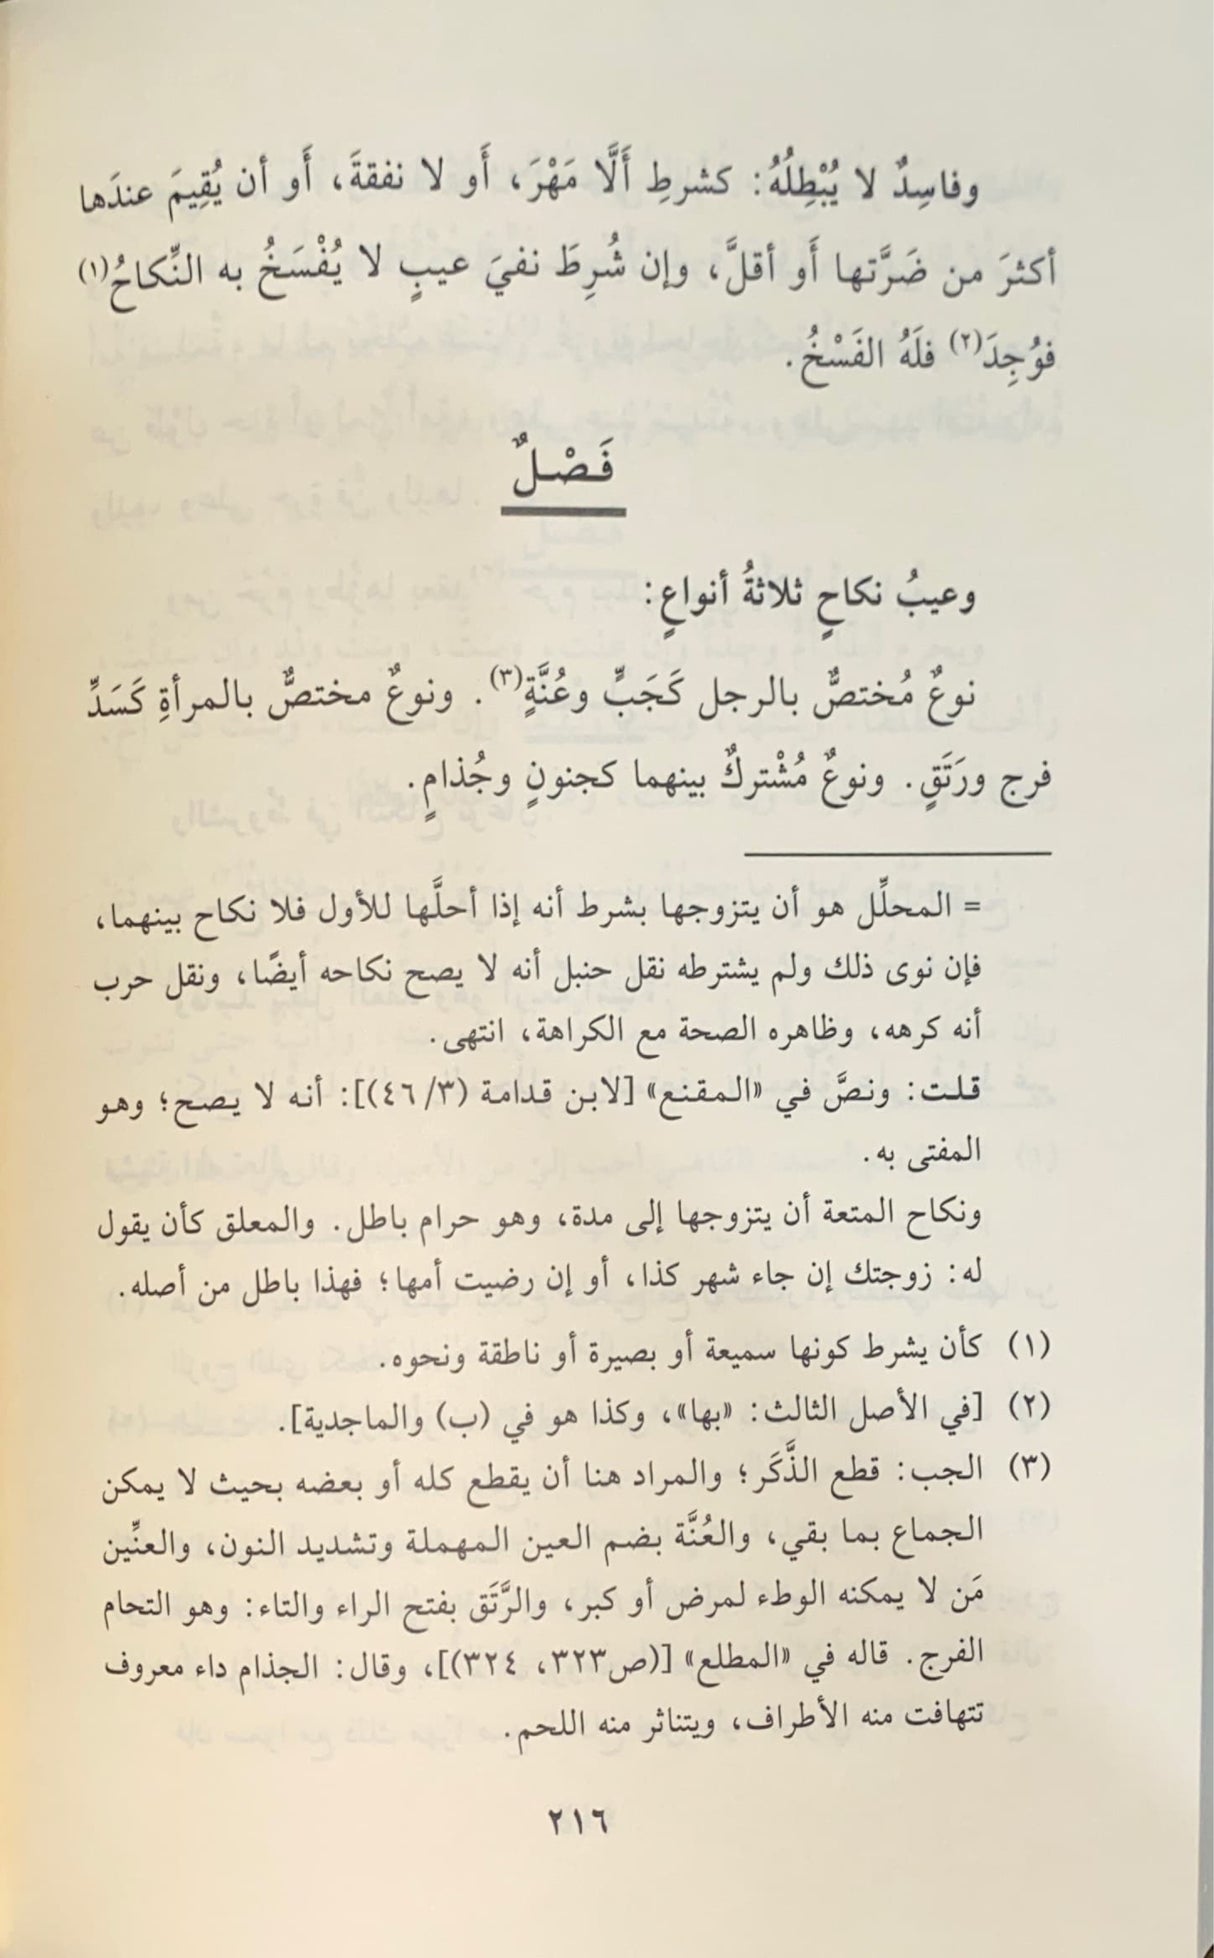 وفاسِدٌ لا يُبْطِلُهُ: كشرطِ أَلَّا مَهْرَ، أَو لا نفقةَ، أَو أن يُقِيمَ عندَها
أكثرَ من ضَرَّتها أَو أقلَّ، وإن شُرِطَ نفيَ عيبٍ لا يُفْسَخُ به النِّكاحُ(١)
فوُجِدَ(٢) فلَهُ الفَسْخُ.
فَصْلٌ
وعيبُ نكاحٍ ثلاثةُ أنواعٍ:
نوعٌ مُختصٌّ بالرجل كَجَبٍّ وعُنَّةٍ(٣). ونوعٌ مختصٌّ بالمرأةِ كَسَدِّ
فرج ورَتَقٍ. ونوعٌ مُشْتركٌ بينهما كجنونٍ وجُذامٍ.
= المحلِّل هو أن يتزوجها بشرط أنه إذا أحلَّها للأول فلا نكاح بينهما،
فإن نوى ذلك ولم يشترطه نقل حنبل أنه لا يصح نكاحه أيضًا، ونقل حرب
أنه كرهه، وظاهره الصحة مع الكراهة، انتهى.
قلت: ونصَّ في «المقنع» [لابن قدامة (٣/ ٤٦)]: أنه لا يصح؛ وهو
المفتى به.
ونكاح المتعة أن يتزوجها إلى مدة، وهو حرام باطل. والمعلق كأن يقول
له: زوجتك إن جاء شهر كذا، أو إن رضيت أمها؛ فهذا باطل من أصله.
(١) كأن يشرط كونها سميعة أو بصيرة أو ناطقة ونحوه.
(٢) [في الأصل الثالث: «بها»، وكذا هو في (ب) والماجدية].
(٣) الجب: قطع الذَّكَر؛ والمراد هنا أن يقطع كله أو بعضه بحيث لا يمكن
الجماع بما بقي، والعُنَّة بضم العين المهملة وتشديد النون، والعنِّين
مَن لا يمكنه الوطء لمرض أو كبر، والرَّتَق بفتح الراء والتاء: وهو التحام
الفرج. قاله في «المطلع» [(ص٣٢٣، ٣٢٤)]، وقال: الجذام داء معروف
تتهافت منه الأطراف، ويتناثر منه اللحم.
٢١٦